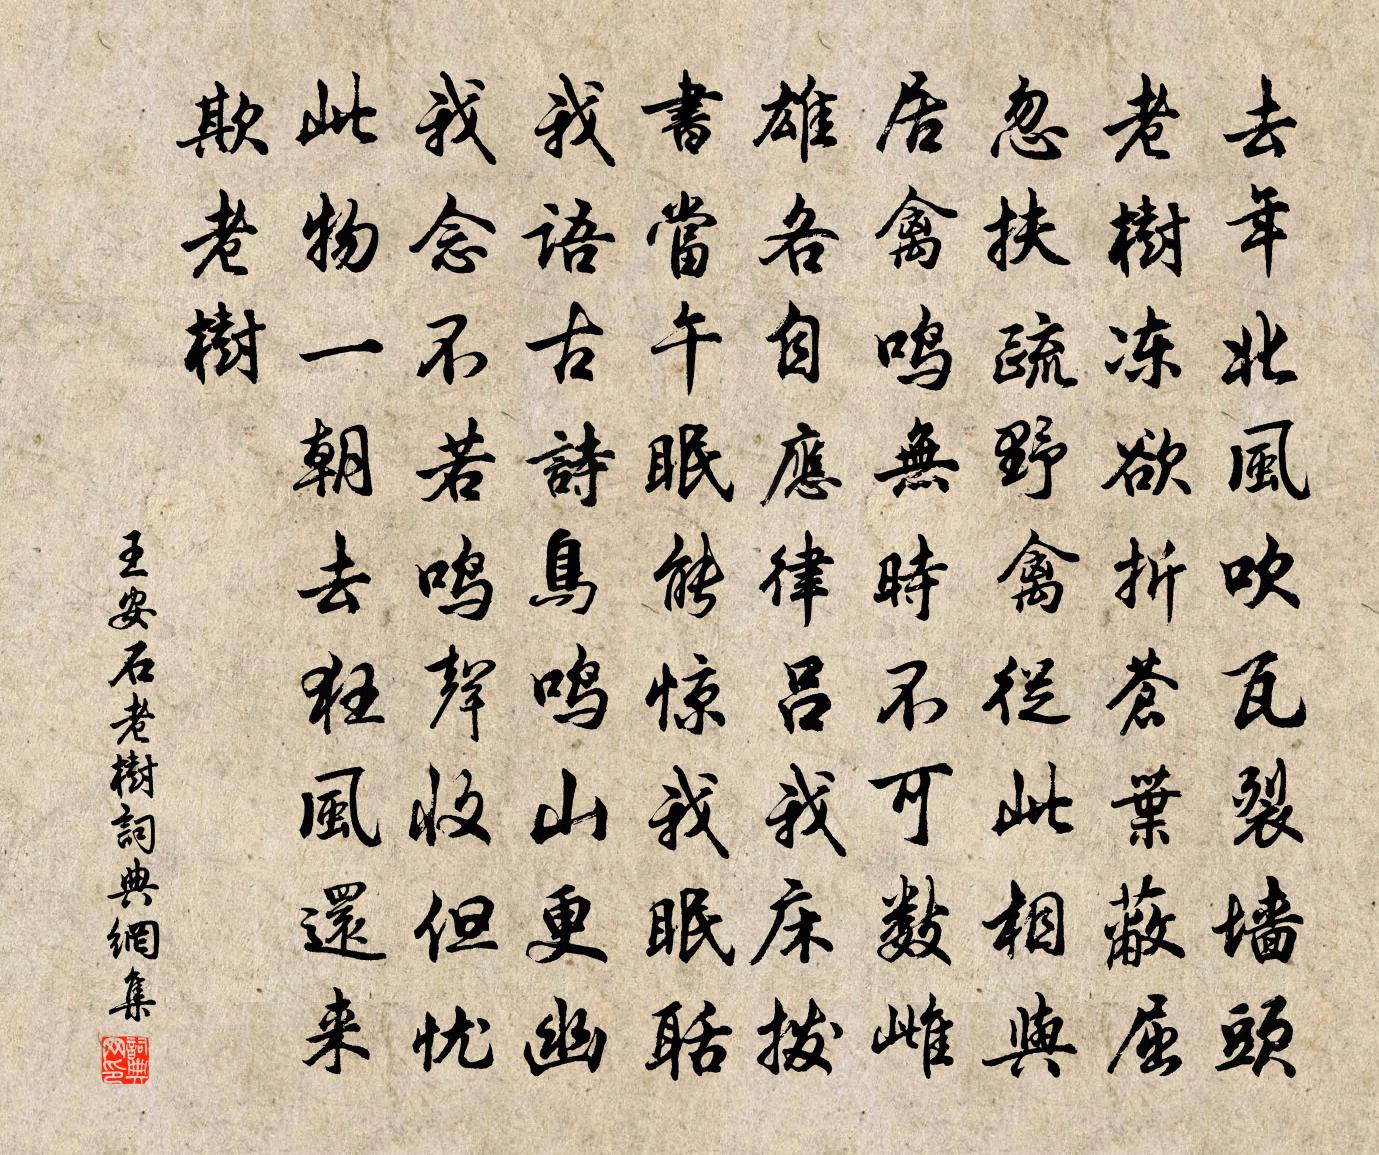 去年北風吹瓦裂墙頭
老樹冻欲折蒼葉蔽屈
忽扶疏野禽從此相與
居禽鸣無時不可數雌
雄各自應律吕我床拨
書當午眠能惊我眠聒
我語古詩鳥鸣山更幽
我念不若鸣聲收但忧
此物一朝去狂風還来
欺老樹
王安石老樹詞典網集
詞典
网印